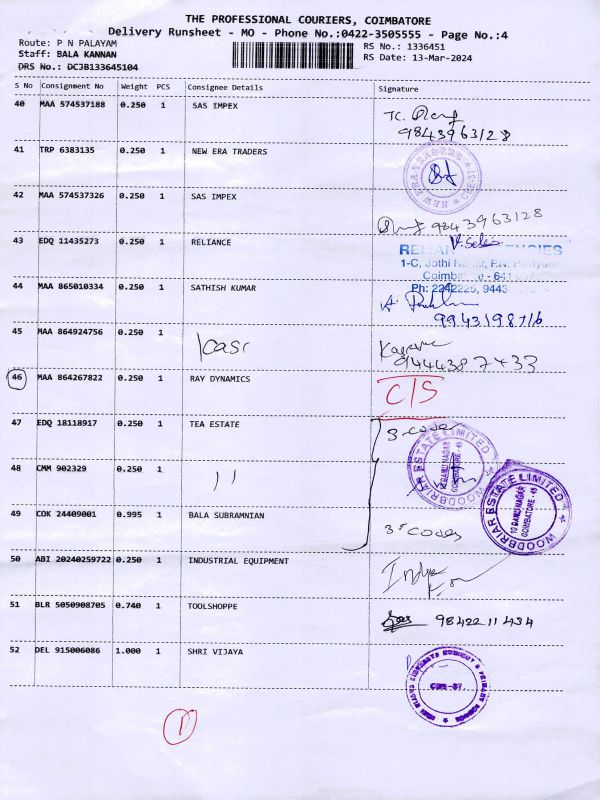 THE PROFESSIONAL COURIERS, COIMBATORE
Delivery Runsheet - MO - Phone No.:0422-3505555 - Page No.:4
Route: P N PALAYAM
RS No.: 1336451
Staff: BALA KANNAN
RS Date: 13-Mar-2024
DRS No.: DCJB133645104
S No Consignment No Weight PCS Consignee Details Signature
40 MAA 574537188 0.250 1 SAS IMPEX
9843963128
41 TRP 6383135 0.250 1 NEW ERA TRADERS
NEW ERA
42 MAA 574537326 0.250 1 SAS IMPEX
9843963128
43 EDQ 11435273 0.250 1 RELIANCE
1-C, Jothi
Ph: 2242225, 9443
44 MAA 865010334 0.250 1 SATHISH KUMAR
9943198716
45 MAA 864924756 0.250 1
9444387433
46 MAA 864267822 0.250 1 RAY DYNAMICS C/S
47 EDQ 18118917 0.250 1 TEA ESTATE
WOODBRIAR ESTATE LIMITED
COIMBATORE - 45
48 CMM 902329 0.250 1 11
WOODBRIAR ESTATE LIMITED
10 BANU NAGAR
COIMBATORE - 45
49 COK 24409001 0.995 1 BALA SUBRAMNIAN
50 ABI 20240259722 0.250 1 INDUSTRIAL EQUIPMENT
51 BLR 5050908705 0.740 1 TOOLSHOPPE 9842211434
52 DEL 915006086 1.000 1 SHRI VIJAYA
1